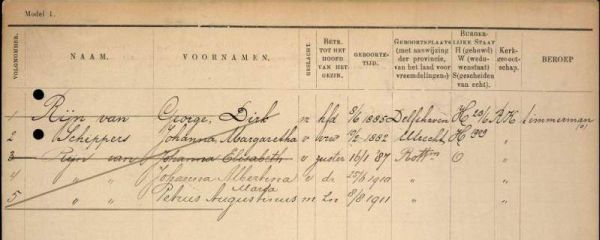 Model 1.
VOLGNUMMER. NAAM. VOORNAMEN. GESLACHT. BETR. TOT HET HOOFD VAN HET GEZIN. GEBOORTE-TIJD. GEBOORTEPLAATS (met aanwijzing der provincie, van het land voor vreemdelingen.) BURGERLIJKE STAAT H (gehuwd) W (weduwenstaat) S (gescheiden van echt). Kerkgenootschap. BEROEP
1 Rijn van George, Dirk m hfd 5/6 1885 Delfshaven H R.K. timmerman
2 Scheppers Johanna Margaretha v vrw 1882 Utrecht H
3 Rijn van Johanna Elisabeth v zuster 16/1 '87 Rottm O
4 " " Johanna Albertina v dr 1910 "
Maria
5 " " Petrus Augustinus m zn 8/8 1911 "